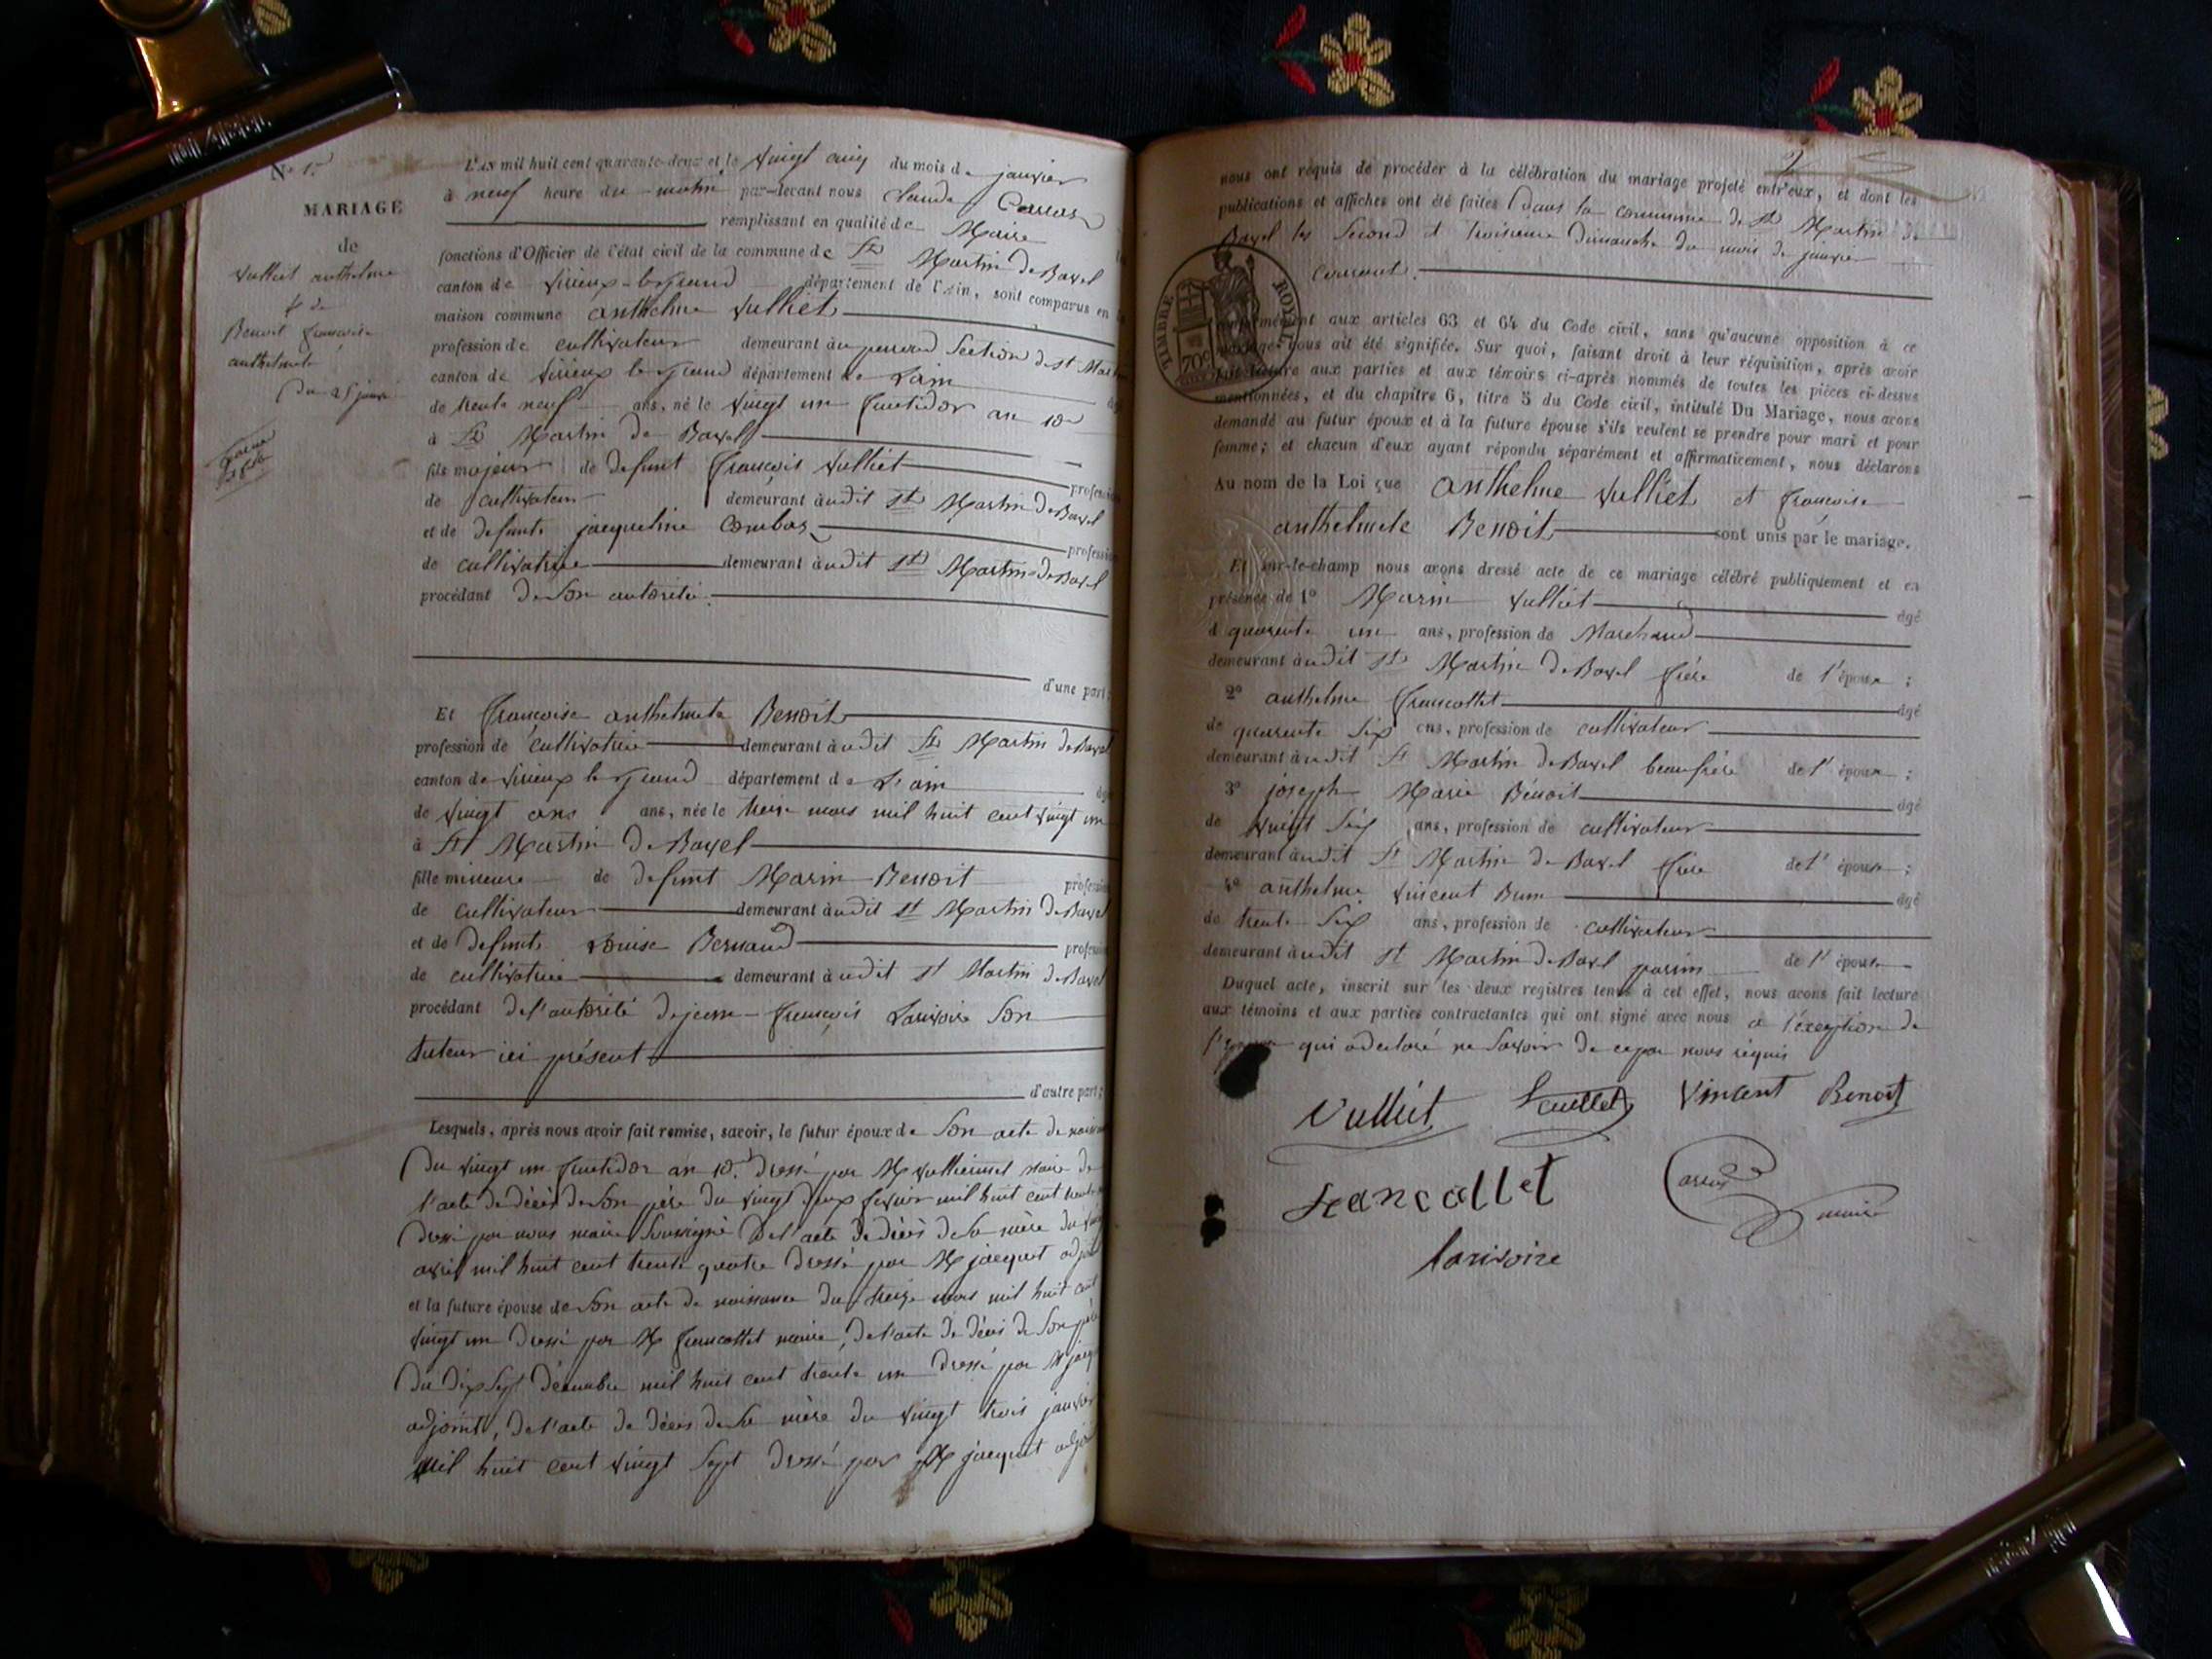 N° 1.
MARIAGE
de
Vulliet anthelme
& de
Benoit françoise
anthelmete
Du 25 janv
L'AN mil huit cent quarante-deux et le Vingt cinq du mois de janvier
à neuf heure du matin par-devant nous Claude Carras
remplissant en qualité de Maire
fonctions d'Officier de l'état civil de la commune de St Martin de Bavel
canton de Virieux-le-Grand département de l'Ain, sont comparus en
maison commune anthelme Vulliet
profession de cultivateur demeurant à Section de St Mar
canton de Virieux le Grand département de L'ain
de trente neuf ans, né le Vingt un fructidor an 10
à St Martin de Bavel
fils majeur de defunt françois Vulliet profession
de cultivateur demeurant à udit St Martin de Bavel
et de defunte jacqueline Combas profession
de cultivatrice demeurant à udit St Martin de Bavel
procédant de Son autorité.
d'une part;
Et françoise anthelmete Benoit
profession de cultivatrice demeurant à udit St Martin de Bavel
canton de Virieux le Grand département de L'ain
de Vingt ans ans, née le treize mars mil huit cent vingt un
à St Martin de Bavel
fille mineure de defunt Marin Benoit profession
de cultivateur demeurant à udit St Martin de Bavel
et de defunte Louise Bernard profession
de cultivatrice demeurant à udit St Martin de Bavel
procédant de l'autorité de jean-françois Larivoire Son
tuteur ici présent
d'autre part;
Lesquels, après nous avoir fait remise, savoir, le futur époux de Son acte de naissance
Du vingt un fructidor an 10. Dressé par M Vulliermet maire de
l'acte de décès de Son père du vingt deux fevrier mil huit cent trente
Dressé par nous maire Soussigné De l'acte de décès de Sa mère du
avril mil huit cent trente quatre Dressé par M jacquet adjoint
et la future épouse de Son acte de naissance du treize mars mil huit cent
vingt un Dressé par M francottet maire, De l'acte de décès de Son père
Du dix Sept décembre mil huit cent trente un Dressé par M jacquet
adjoint, De l'acte de décès de Sa mère du vingt trois janvier
mil huit cent vingt Sept Dressé par M jacquet adjoint
2
nous ont requis de procéder à la célébration du mariage projeté entr'eux, et dont les
publications et affiches ont été faites Dans la commune de St Martin de
Bavel les Second et troisieme Dimanche du mois de janvier
Courant.
TIMBRE ROYAL
70c
conformément aux articles 63 et 64 du Code civil, sans qu'aucune opposition à ce
mariage nous ait été signifiée. Sur quoi, faisant droit à leur réquisition, après avoir
fait lecture aux parties et aux témoins ci-après nommés de toutes les pièces ci-dessus
mentionnées, et du chapitre 6, titre 5 du Code civil, intitulé Du Mariage, nous avons
demandé au futur époux et à la future épouse s'ils veulent se prendre pour mari et pour
femme; et chacun d'eux ayant répondu séparément et affirmativement, nous déclarons
Au nom de la Loi que anthelme Vulliet et françoise
anthelmete Benoit sont unis par le mariage.
Et sur-le-champ nous avons dressé acte de ce mariage célébré publiquement et en
présence de 1° Marin Vulliet âgé
d quarente un ans, profession de Marchand
demeurant à udit St Martin de Bavel frère de l'époux;
2° anthelme francottet âgé
de quarente Six ans, profession de cultivateur
demeurant à udit St Martin de Bavel beaufrère de l'époux;
3° joseph Marie Bénoit âgé
de vingt Six ans, profession de cultivateur
demeurant à udit St Martin de Bavel frère de l'épouse;
4° anthelme Vincent Brun âgé
de trente Six ans, profession de cultivateur
demeurant à udit St Martin de Bavel de l'épouse
Duquel acte, inscrit sur les deux registres tenus à cet effet, nous avons fait lecture
aux témoins et aux parties contractantes qui ont signé avec nous a l'exeption de
l'épouse qui a declaré ne Savoir de ce par nous requis
Vulliet Vulliet Vincent Benoit
francottet Carras maire
larivoire